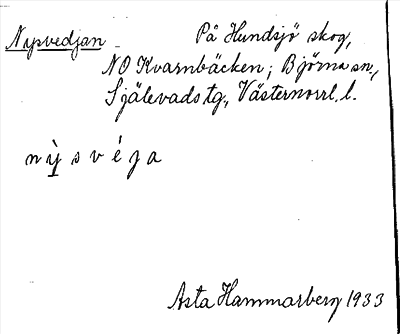 Nypvedjan På Hundsjö skog,
NO Kvarnbäcken; Björna sn.,
Själevads tg., Västernorrl. l.
nỳsvéja
Asta Hammarberg 1933